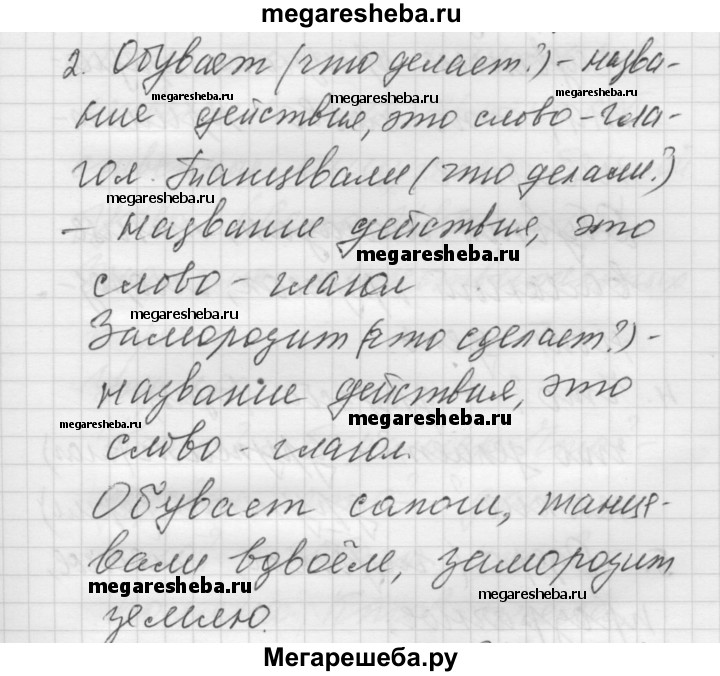 megaresheba.ru
2. Обувает (что делает?) - назва-
megaresheba.ru megaresheba.ru
ние действия, это слово - гла-
гол. Танцевали (что делали?)
megaresheba.ru
- название действия, это
megaresheba.ru
слово - глагол
megaresheba.ru
Заморозит (что сделает?) -
название действия, это
megaresheba.ru
megaresheba.ru
слово - глагол.
Обувает сапоги, танце-
вали вдвоём, заморозит
megaresheba.ru
землю.
megaresheba.ru
Мегарешеба.ру